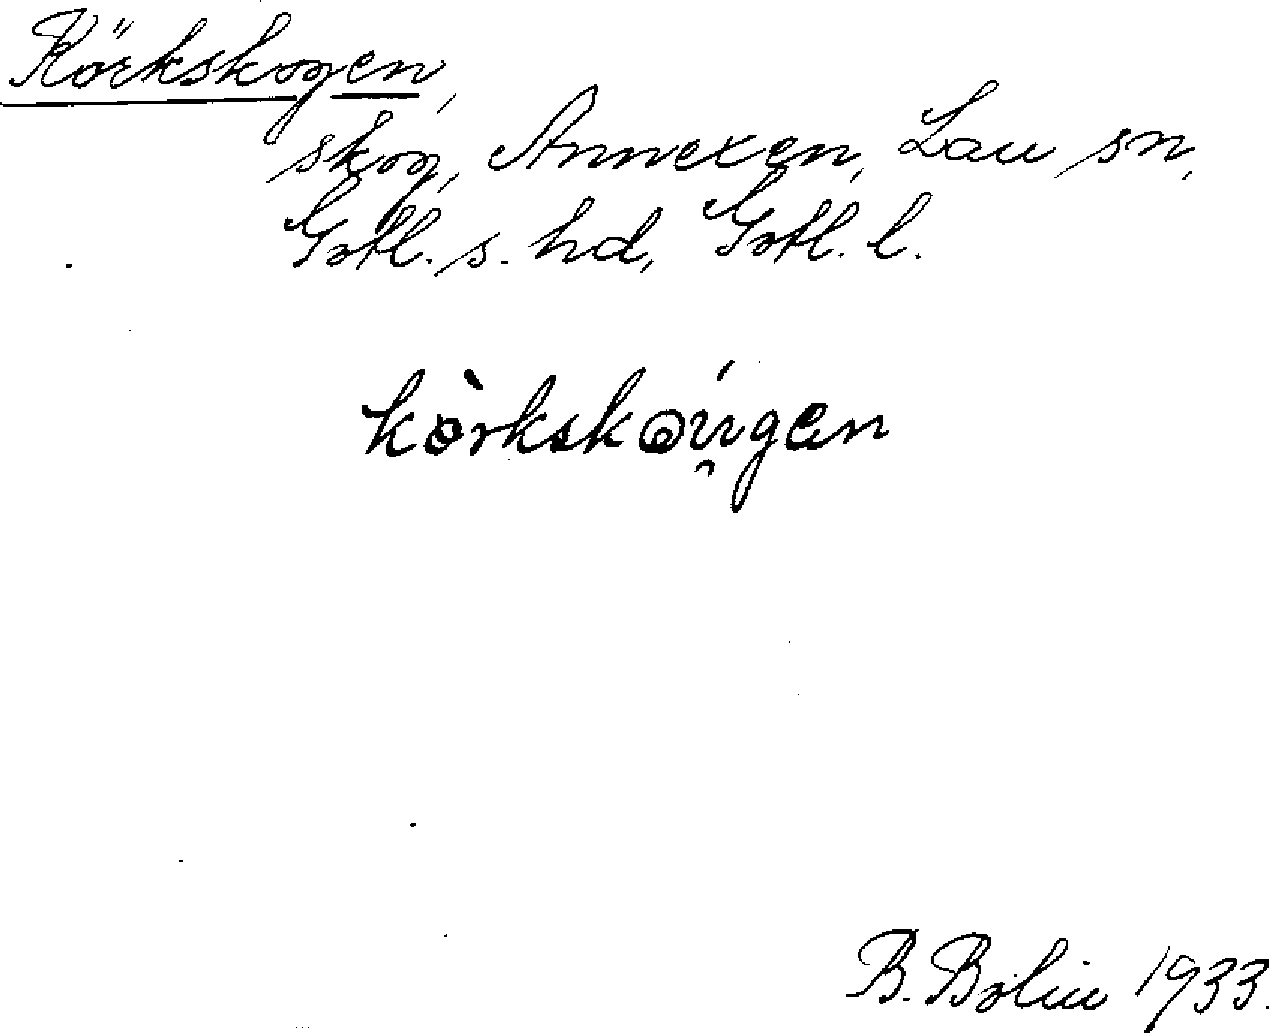 Körkskogen,
skog, Annexen, Lau sn,
Gotl. s. hd, Gotl. l.
körkskougen
B. Bolin 1933.